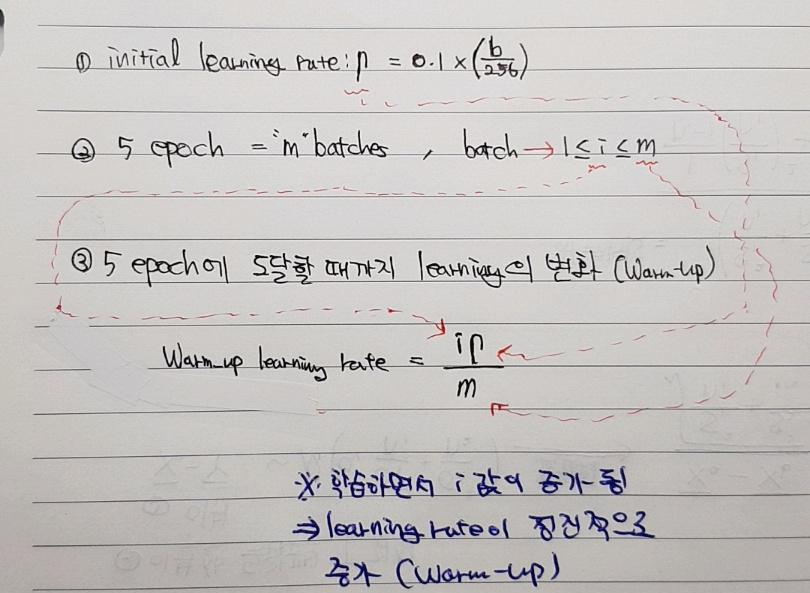 ① initial learning rate: η = 0.1 × (b/256)
② 5 epoch = "m" batches , batch → 1 ≤ i ≤ m
③ 5 epoch에 도달할 때까지 learning의 변화 (Warm-up)
Warm-up learning rate = iη/m
※ 학습하면서 i 값이 증가 됨
⇒ learning rate이 점진적으로
증가 (Warm-up)